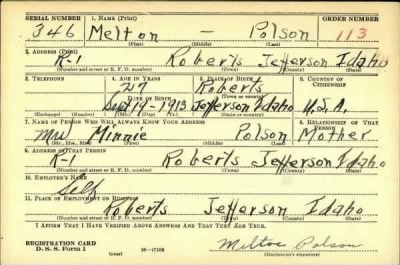 SERIAL NUMBER 1. NAME (Print) ORDER NUMBER
346 Melton - Polson 113
(First) (Middle) (Last)
2. ADDRESS (Print)
R-1 Roberts Jefferson Idaho
(Number and street or R. F. D. number) (Town) (County) (State)
3. TELEPHONE 4. AGE IN YEARS 5. PLACE OF BIRTH 6. COUNTRY OF CITIZENSHIP
27 Roberts
(Town or county)
DATE OF BIRTH
Sept-14-1913 Jefferson Idaho U.S.A.
(Exchange) (Number) (Mo.) (Day) (Yr.) (State or country)
7. NAME OF PERSON WHO WILL ALWAYS KNOW YOUR ADDRESS 8. RELATIONSHIP OF THAT PERSON
Mrs Minnie Polson Mother
(Mr., Mrs., Miss) (First) (Middle) (Last)
9. ADDRESS OF THAT PERSON
R-1 Roberts Jefferson Idaho
(Number and street or R. F. D. number) (Town) (County) (State)
10. EMPLOYER'S NAME
Self
11. PLACE OF EMPLOYMENT OR BUSINESS
Roberts Jefferson Idaho
(Number and street or R. F. D. number) (Town) (County) (State)
I AFFIRM THAT I HAVE VERIFIED ABOVE ANSWERS AND THAT THEY ARE TRUE.
REGISTRATION CARD
D. S. S. Form 1 (over) Melton Polson
(Registrant's signature)